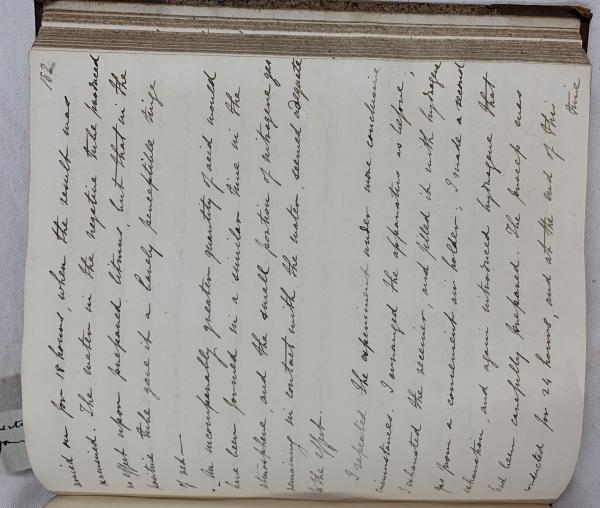 182
carried on for 18 hours, when the result was
examined. The water in the negative tube produced
no effect upon prepared litmus, but that in the
positive tube gave it a barely perceptible tinge
of red—
An incomparably greater quantity of acid would
have been formed in a similar time in the
atmosphere, and the small portion of nitrogene gas
remaining in contact with the water, seemed adequate
to the effect.
I repeated the experiment under more conclusive
circumstances. I arranged the apparatus as before;
I exhausted the receiver, and filled it with hydrogene
gas from a convenient air holder; I made a second
exhaustion, and again introduced hydrogene that
had been carefully prepared. The process was
conducted for 24 hours, and at the end of this
time